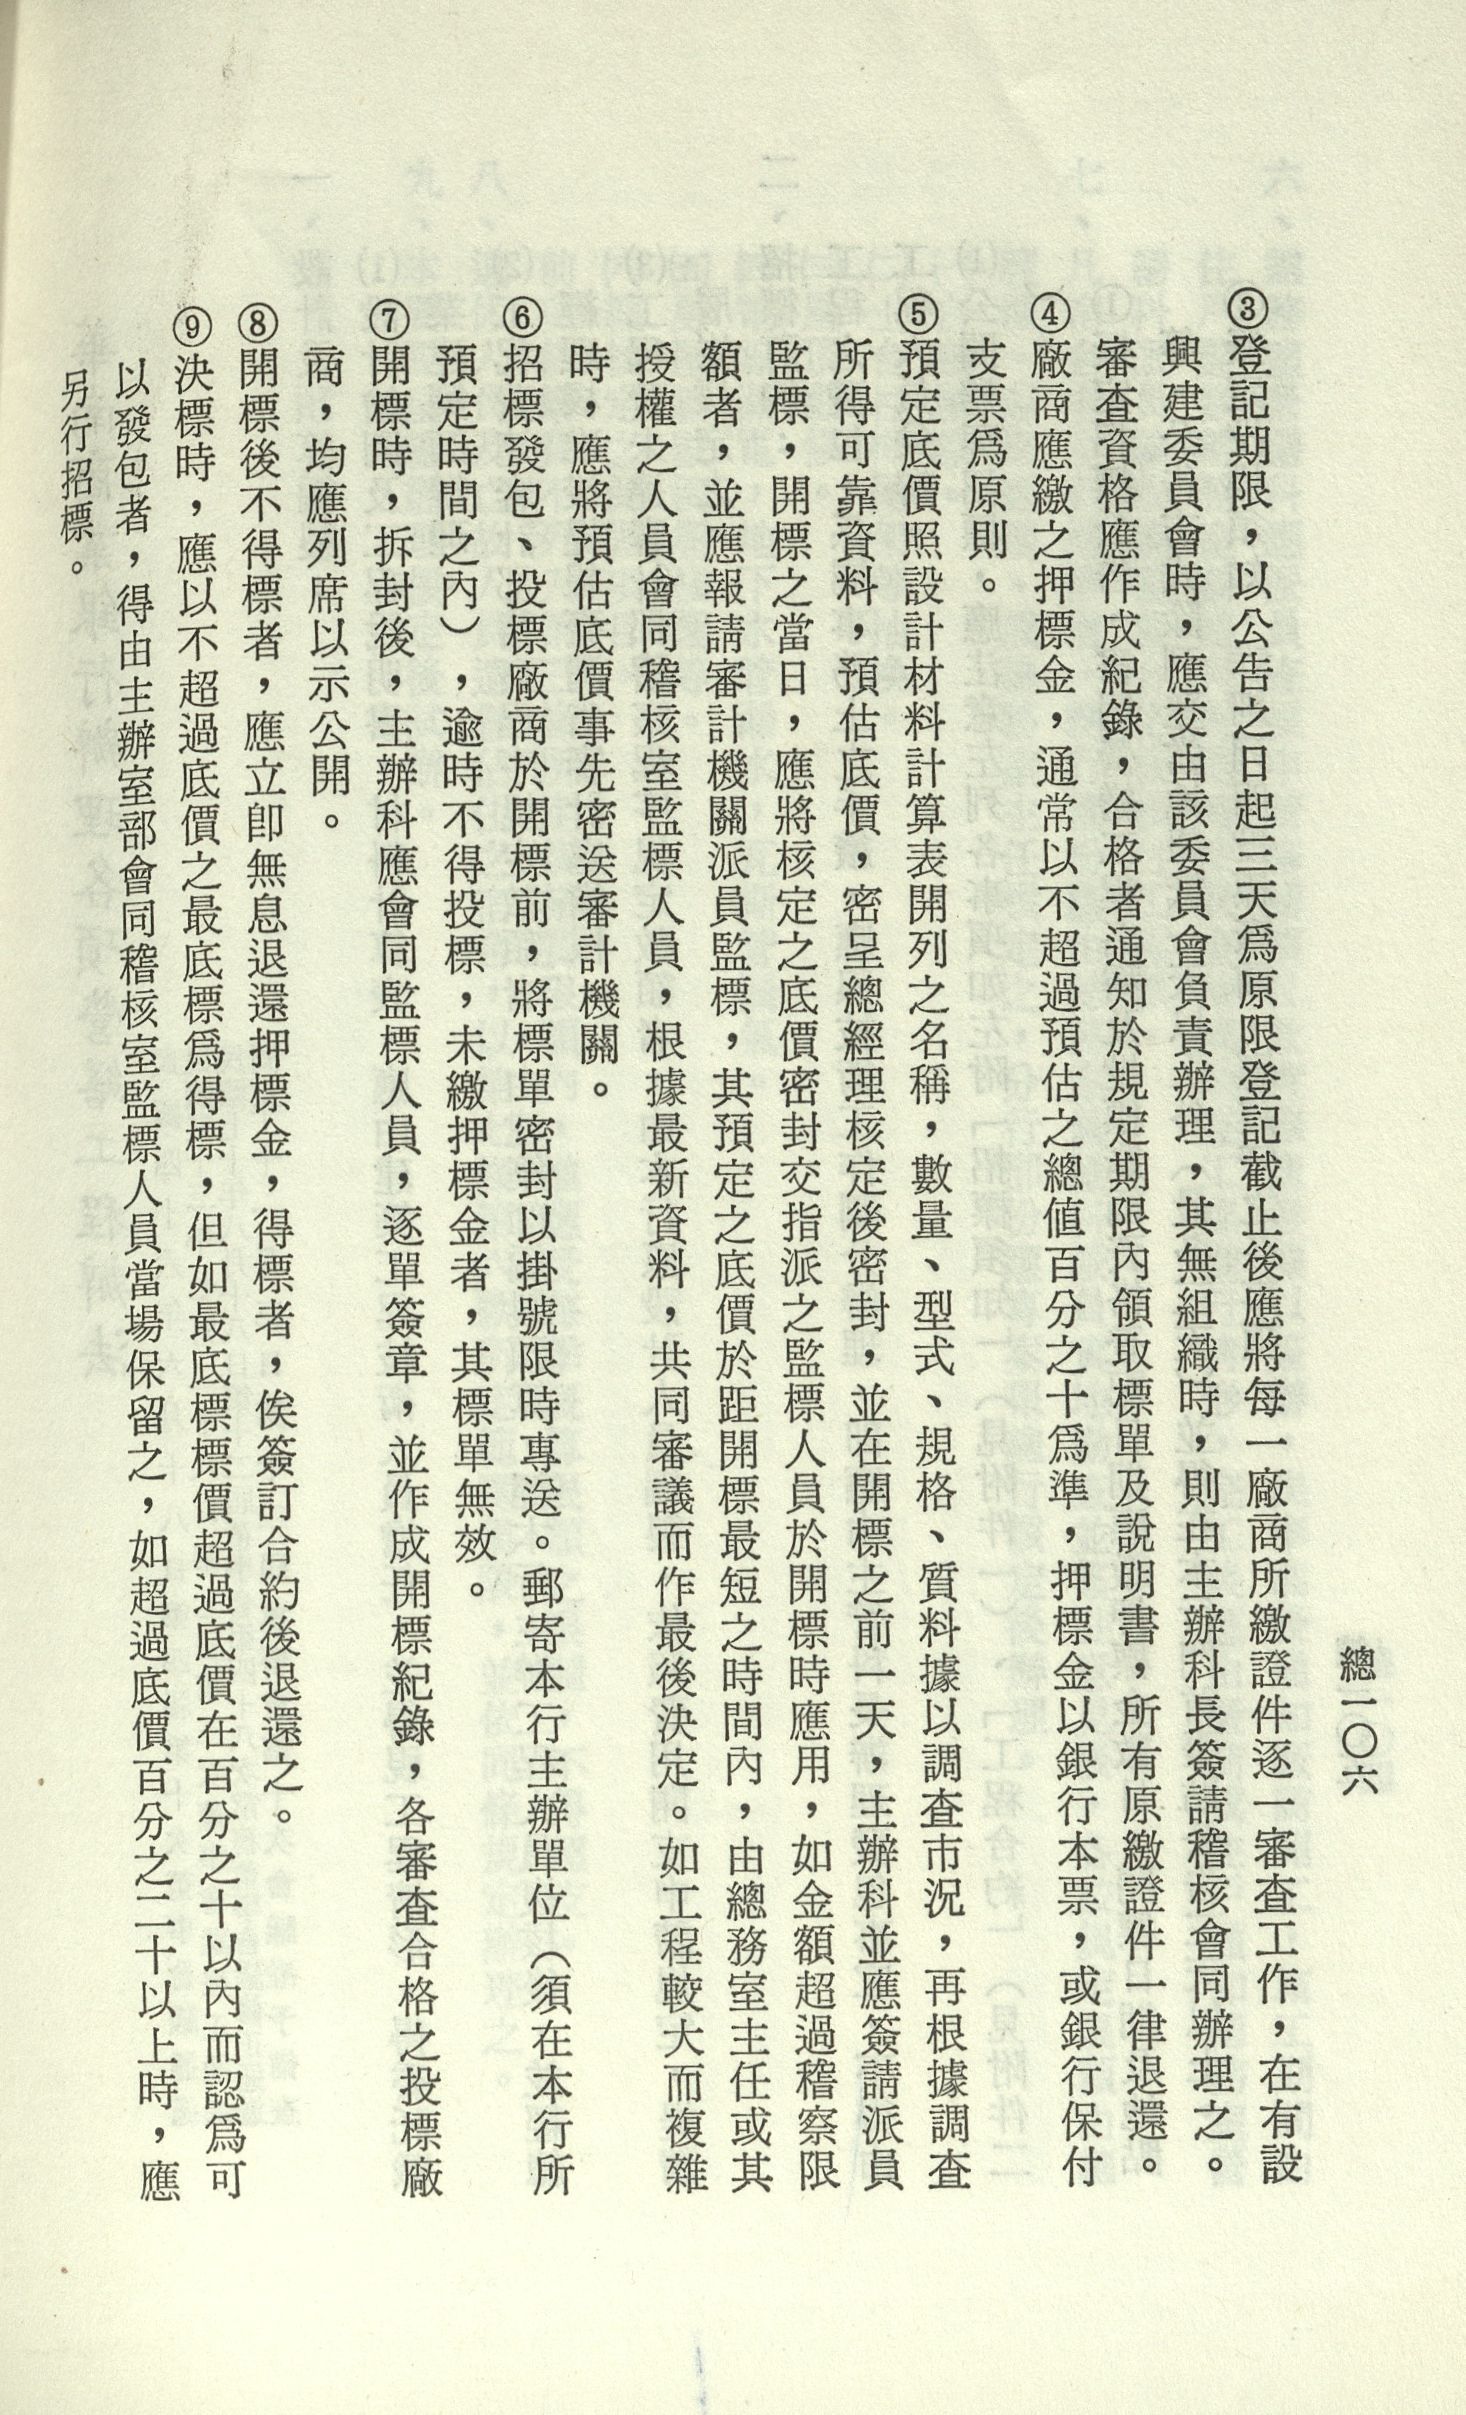 總一〇六
③登記期限，以公告之日起三天爲原限登記截止後應將每一廠商所繳證件逐一審查工作，在有設
興建委員會時，應交由該委員會負責辦理，其無組織時，則由主辦科長簽請稽核會同辦理之。
審查資格應作成紀錄，合格者通知於規定期限內領取標單及說明書，所有原繳證件一律退還。
④廠商應繳之押標金，通常以不超過預估之總值百分之十爲準，押標金以銀行本票，或銀行保付
支票爲原則。
⑤預定底價照設計材料計算表開列之名稱，數量、型式、規格、質料據以調查市況，再根據調查
所得可靠資料，預估底價，密呈總經理核定後密封，並在開標之前一天，主辦科並應簽請派員
監標，開標之當日，應將核定之底價密封交指派之監標人員於開標時應用，如金額超過稽察限
額者，並應報請審計機關派員監標，其預定之底價於距開標最短之時間內，由總務室主任或其
授權之人員會同稽核室監標人員，根據最新資料，共同審議而作最後決定。如工程較大而複雜
時，應將預估底價事先密送審計機關。
⑥招標發包、投標廠商於開標前，將標單密封以掛號限時專送。郵寄本行主辦單位（須在本行所
預定時間之內），逾時不得投標，未繳押標金者，其標單無效。
⑦開標時，拆封後，主辦科應會同監標人員，逐單簽章，並作成開標紀錄，各審查合格之投標廠
商，均應列席以示公開。
⑧開標後不得標者，應立卽無息退還押標金，得標者，俟簽訂合約後退還之。
⑨決標時，應以不超過底價之最底標爲得標，但如最底標標價超過底價在百分之十以內而認爲可
以發包者，得由主辦室部會同稽核室監標人員當場保留之，如超過底價百分之二十以上時，應
另行招標。